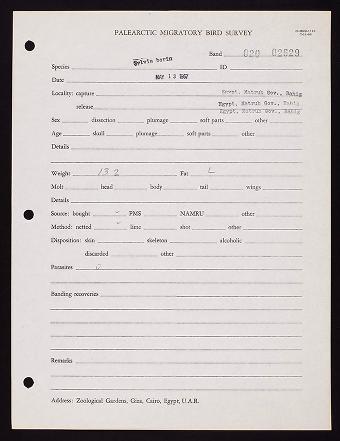 PALEARCTIC MIGRATORY BIRD SURVEY
Band 020 02629
Species Sylvia borin ID
Date MAY 13 1967
Locality: capture Egypt, Matruh Gov., Bahig
release Egypt, Matruh Gov., Bahig
Egypt, Matruh Gov., Bahig
Sex dissection plumage soft parts other
Age skull plumage soft parts other
Details
Weight 13 2 Fat L
Molt head body tail wings
Details
Source: bought PMS NAMRU other
Method: netted lime shot other
Disposition: skin skeleton alcoholic
discarded other
Parasites 0
Banding recoveries
Remarks
Address: Zoological Gardens, Giza, Cairo, Egypt, U.A.R.